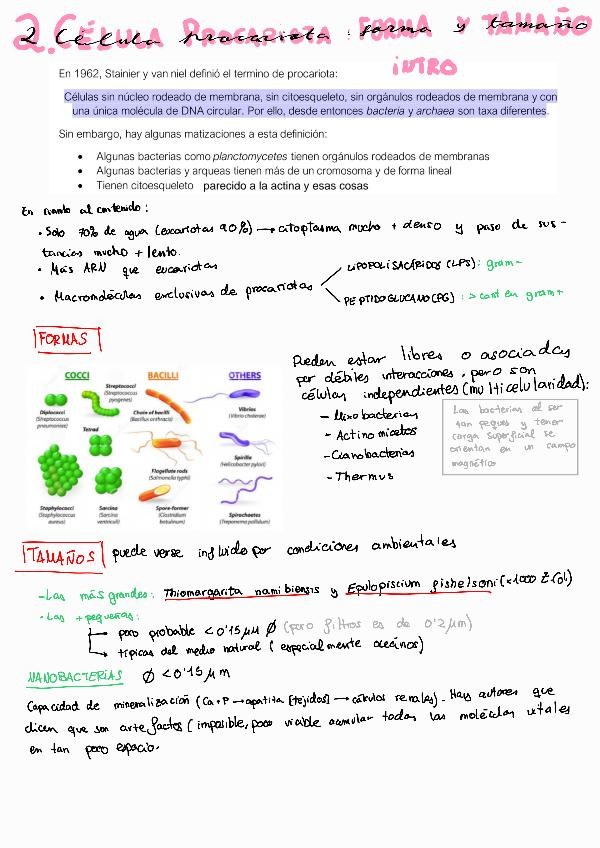 2. CÉLULA PROCARIOTA: FORMA Y TAMAÑO
2 Célula procariota: forma y tamaño
INTRO
En 1962, Stainier y van niel definió el termino de procariota:
Células sin núcleo rodeado de membrana, sin citoesqueleto, sin orgánulos rodeados de membrana y con
una única molécula de DNA circular. Por ello, desde entonces bacteria y archaea son taxa diferentes.
Sin embargo, hay algunas matizaciones a esta definición:
• Algunas bacterias como planctomycetes tienen orgánulos rodeados de membranas
• Algunas bacterias y arqueas tienen más de un cromosoma y de forma lineal
• Tienen citoesqueleto parecido a la actina y esas cosas
En cuanto al contenido:
• Solo 70% de agua (eucariotas 90%) → citoplasma mucho + denso y paso de sus-
tancias mucho + lento.
• Más ARN que eucariotas
• Macromoléculas exclusivas de procariotas
LIPOPOLISACÁRIDOS (LPS): gram-
PEPTIDOGLUCANO (PG): > cant en gram+
FORMAS
COCCI
BACILLI
OTHERS
Diplococci
(Streptococcus
pneumoniae)
Streptococci
(Streptococcus
pyogenes)
Chain of bacilli
(Bacillus anthracis)
Vibrios
(Vibrio cholerae)
Tetrad
Flagellate rods
(Salmonella typhi)
Spirilla
(Helicobacter pylori)
Staphylococci
(Staphylococcus
aureus)
Sarcina
(Sarcina
ventriculi)
Spore-former
(Clostridium
botulinum)
Spirochaetes
(Treponema pallidum)
Pueden estar libres o asociadas
por débiles interacciones, pero son
células independientes (multicelularidad):
- Mixobacterias
- Actinomicetos
- Cianobacterias
- Thermus
Las bacterias al ser
tan peques y tener
carga superficial se
orientan en un campo
magnético
TAMAÑOS puede verse influido por condiciones ambientales
- Las más grandes: Thiomargarita namibiensis y Epulopiscium fishelsoni (×1000 E.Coli)
• Las + pequeñas:
poco probable < 0'15 μM Ø (poro filtros es de 0'2 μm)
típicas del medio natural (especialmente océanos)
NANOBACTERIAS Ø < 0'15 μm
Capacidad de mineralización (Ca + P → apatita [tejidos] → cálculos renales). Hay autores que
dicen que son artefactos (imposible, poco viable acumular todas las moléculas vitales
en tan poco espacio.